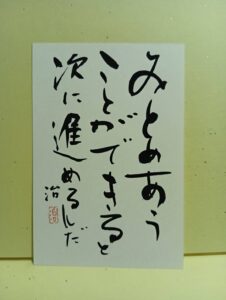 みとめあう
ことができると
次に進めるんだ
治